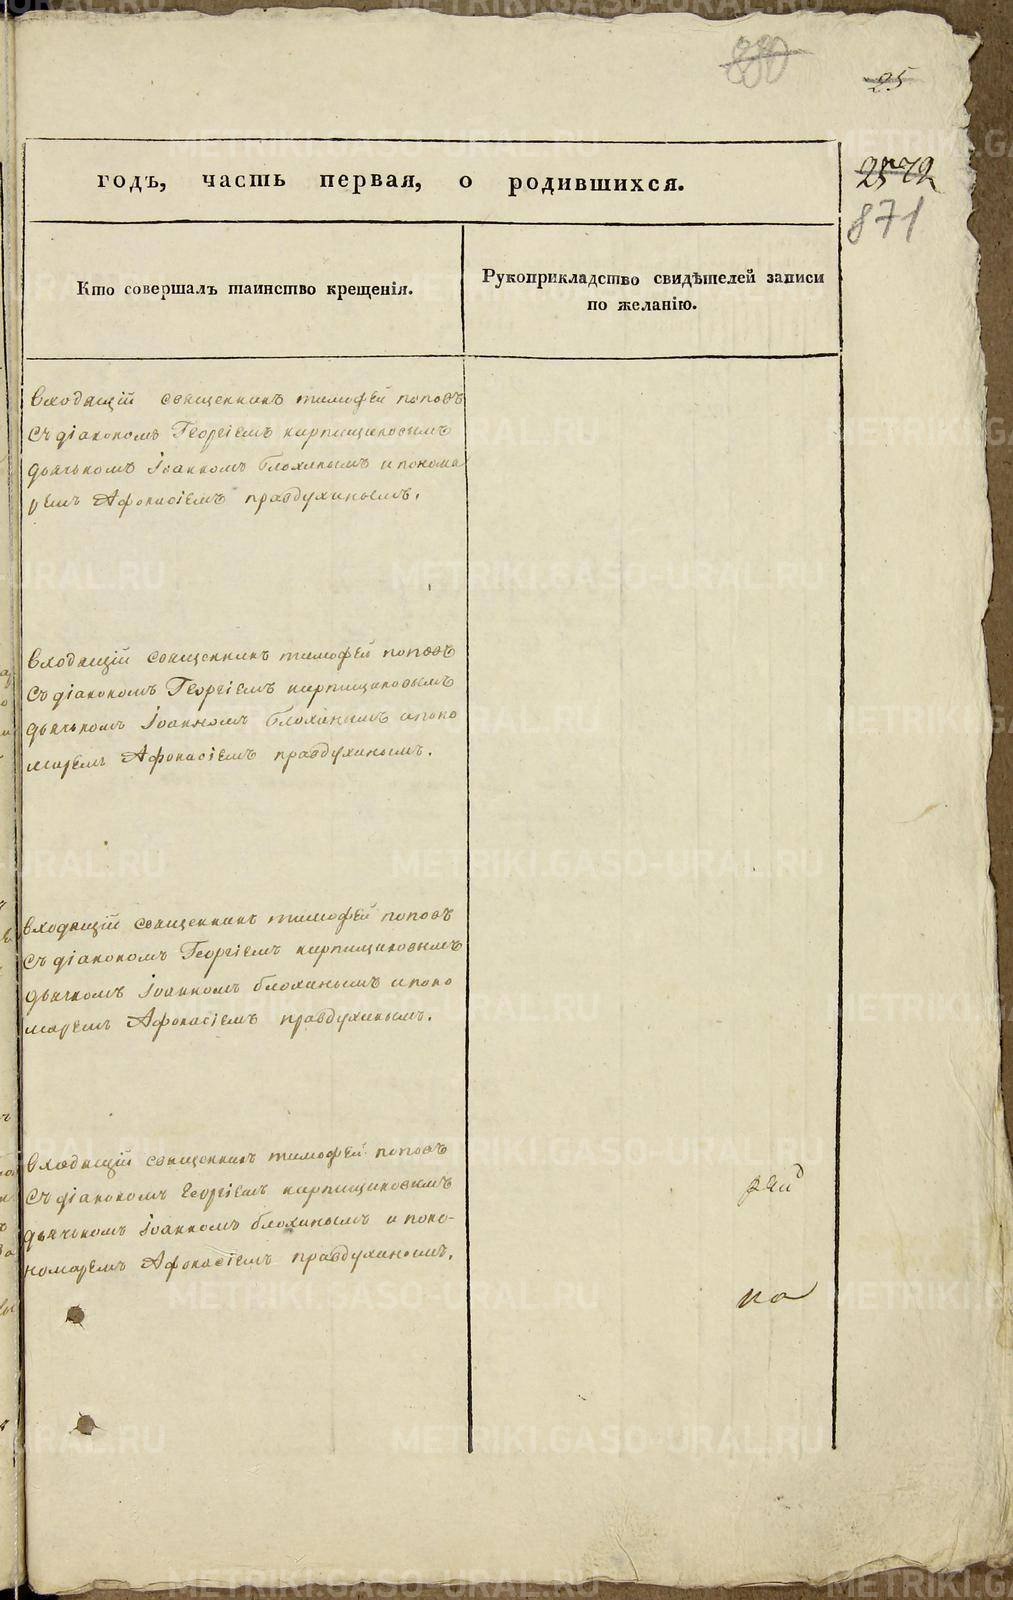 880
25
годъ, часть первая, о родившихся.
2572
871
Кто совершалъ таинство крещенія.
Рукоприкладство свидѣтелей записи
по желанію.
входящій священникъ тимофей поповъ
съ діакономъ Георгіемъ кирпищиковымъ
дьячькомъ Іоанномъ блохинымъ и понома
ремъ Афонасіемъ правдухинымъ.
входящій священникъ тимофей поповъ
съ діакономъ Георгіемъ кирпищиковымъ
дьячькомъ Іоанномъ блохинымъ и поно
маремъ Афонасіемъ правдухинымъ.
входящій священникъ тимофей поповъ
съ діакономъ Георгіемъ кирпищиковымъ
дьячкомъ Іоанномъ блохинымъ и поно
маремъ Афонасіемъ правдухинымъ.
входящій священникъ тимофей поповъ
съ діакономъ Георгіемъ кирпищиковымъ
дьячькомъ Іоанномъ блохинымъ и поно-
номаремъ Афонасіемъ правдухинымъ.
по
METRIKI.GASO-URAL.RU